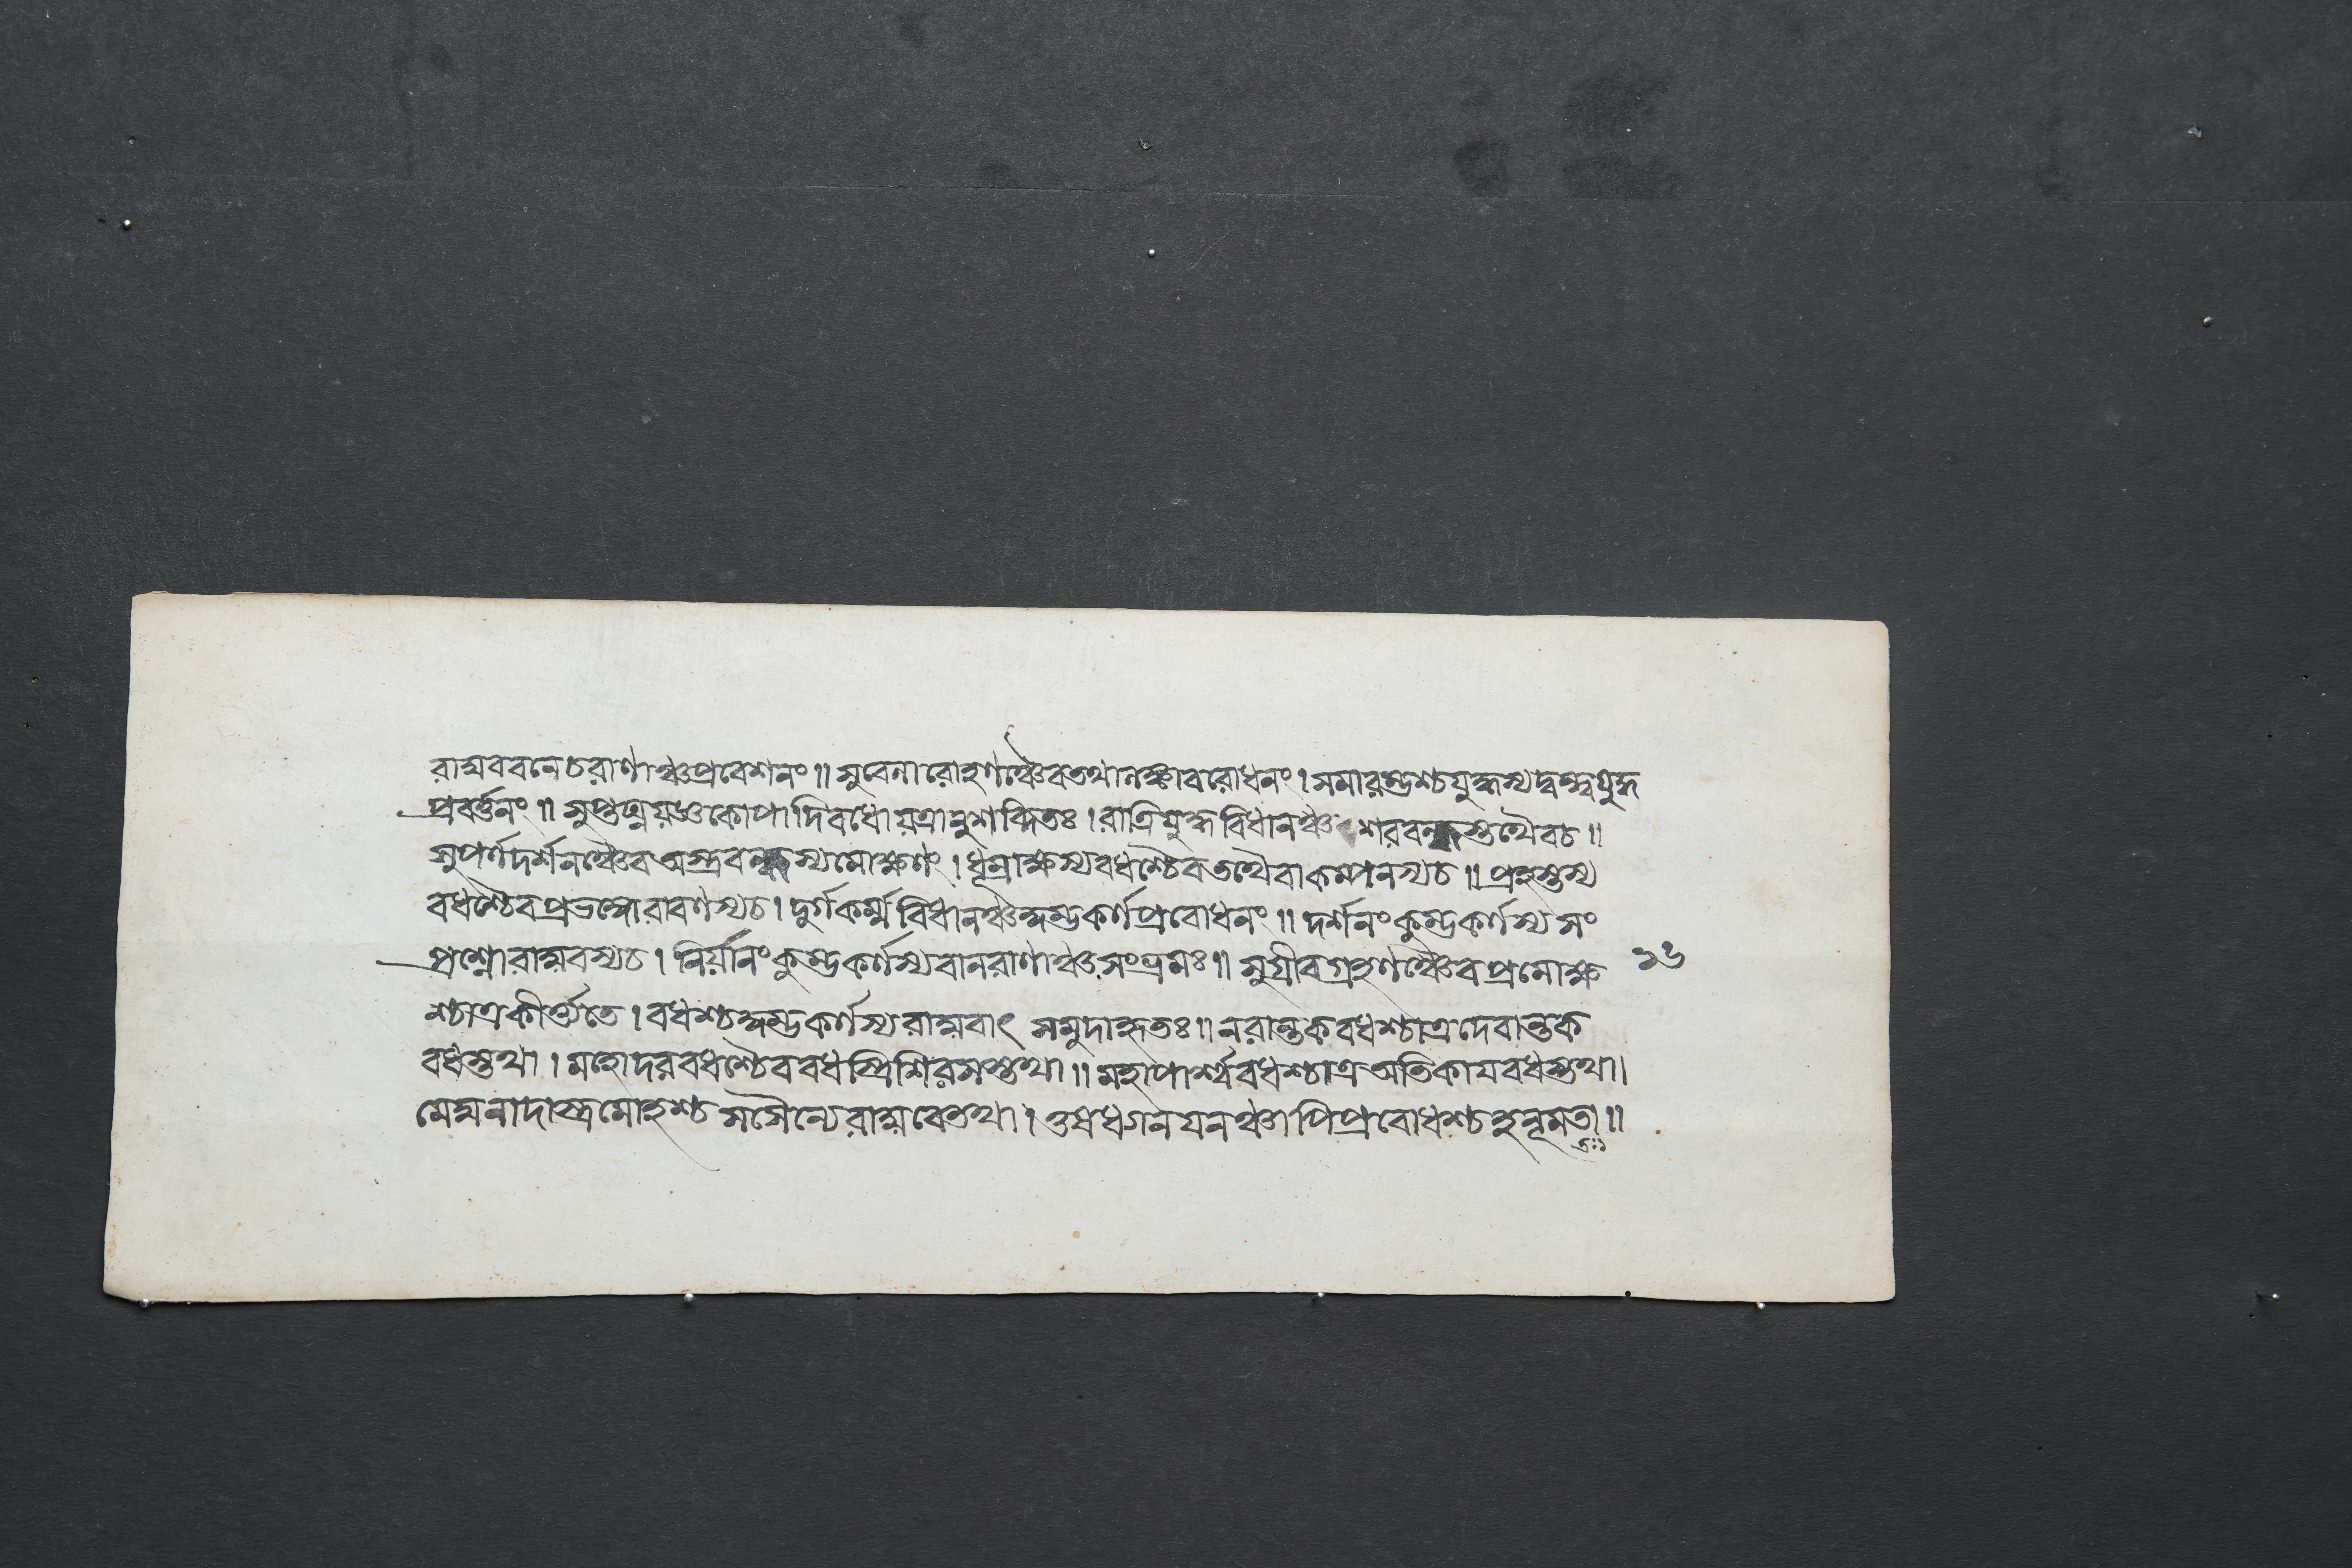 রাঘববনেচরাণাঞ্চপ্রবেশনং॥ সুবেনারোহণঞ্চৈবতথালঙ্কাবরোধনং। সমারম্ভশ্চযুদ্ধস্যদ্বন্দ্বযুদ্ধ
প্রবর্ত্তনং॥ সুপ্তঘ্নযজ্ঞকোপাদিবধোযত্রানুশব্দিতঃ। রাত্রিযুদ্ধবিধানঞ্চ শরবন্ধস্তথৈবচ॥
সুপর্ণদর্শনঞ্চৈবঅস্ত্রবন্ধস্যমোক্ষণং। ধূম্রাক্ষস্যবধশ্চৈবতথৈবাকম্পনস্যচ॥ প্রহস্তস্য
বধশ্চৈবপ্রভঙ্গোরাবণস্যচ। দুর্গকর্ম্মবিধানঞ্চকুম্ভকর্ণপ্রবোধনং॥ দর্শনংকুম্ভকর্ণস্যসং
প্রশ্নোরাঘবস্যচ। নির্যানংকুম্ভকর্ণস্যবানরাণাঞ্চসংভ্রমঃ॥ সুগ্রীবগ্রহণঞ্চৈবপ্রমোক্ষ
১৬
শ্চাত্রকীর্ত্ত্যতে। বধশ্চকুম্ভকর্ণস্যরাঘবাৎ সমুদাহৃতঃ॥ নরান্তকবধশ্চাত্রদেবান্তক
বধস্তথা। মহোদরবধশ্চৈববধস্ত্রিশিরসস্তথা॥ মহাপার্শ্ববধশ্চাত্রঅতিকাযবধস্তথা।
মেঘনাদাস্ত্রমোহশ্চসসৈন্যেরাঘবেতথা। ওষধগনযনঞ্চাপিপ্রবোধশ্চহনূমতা॥